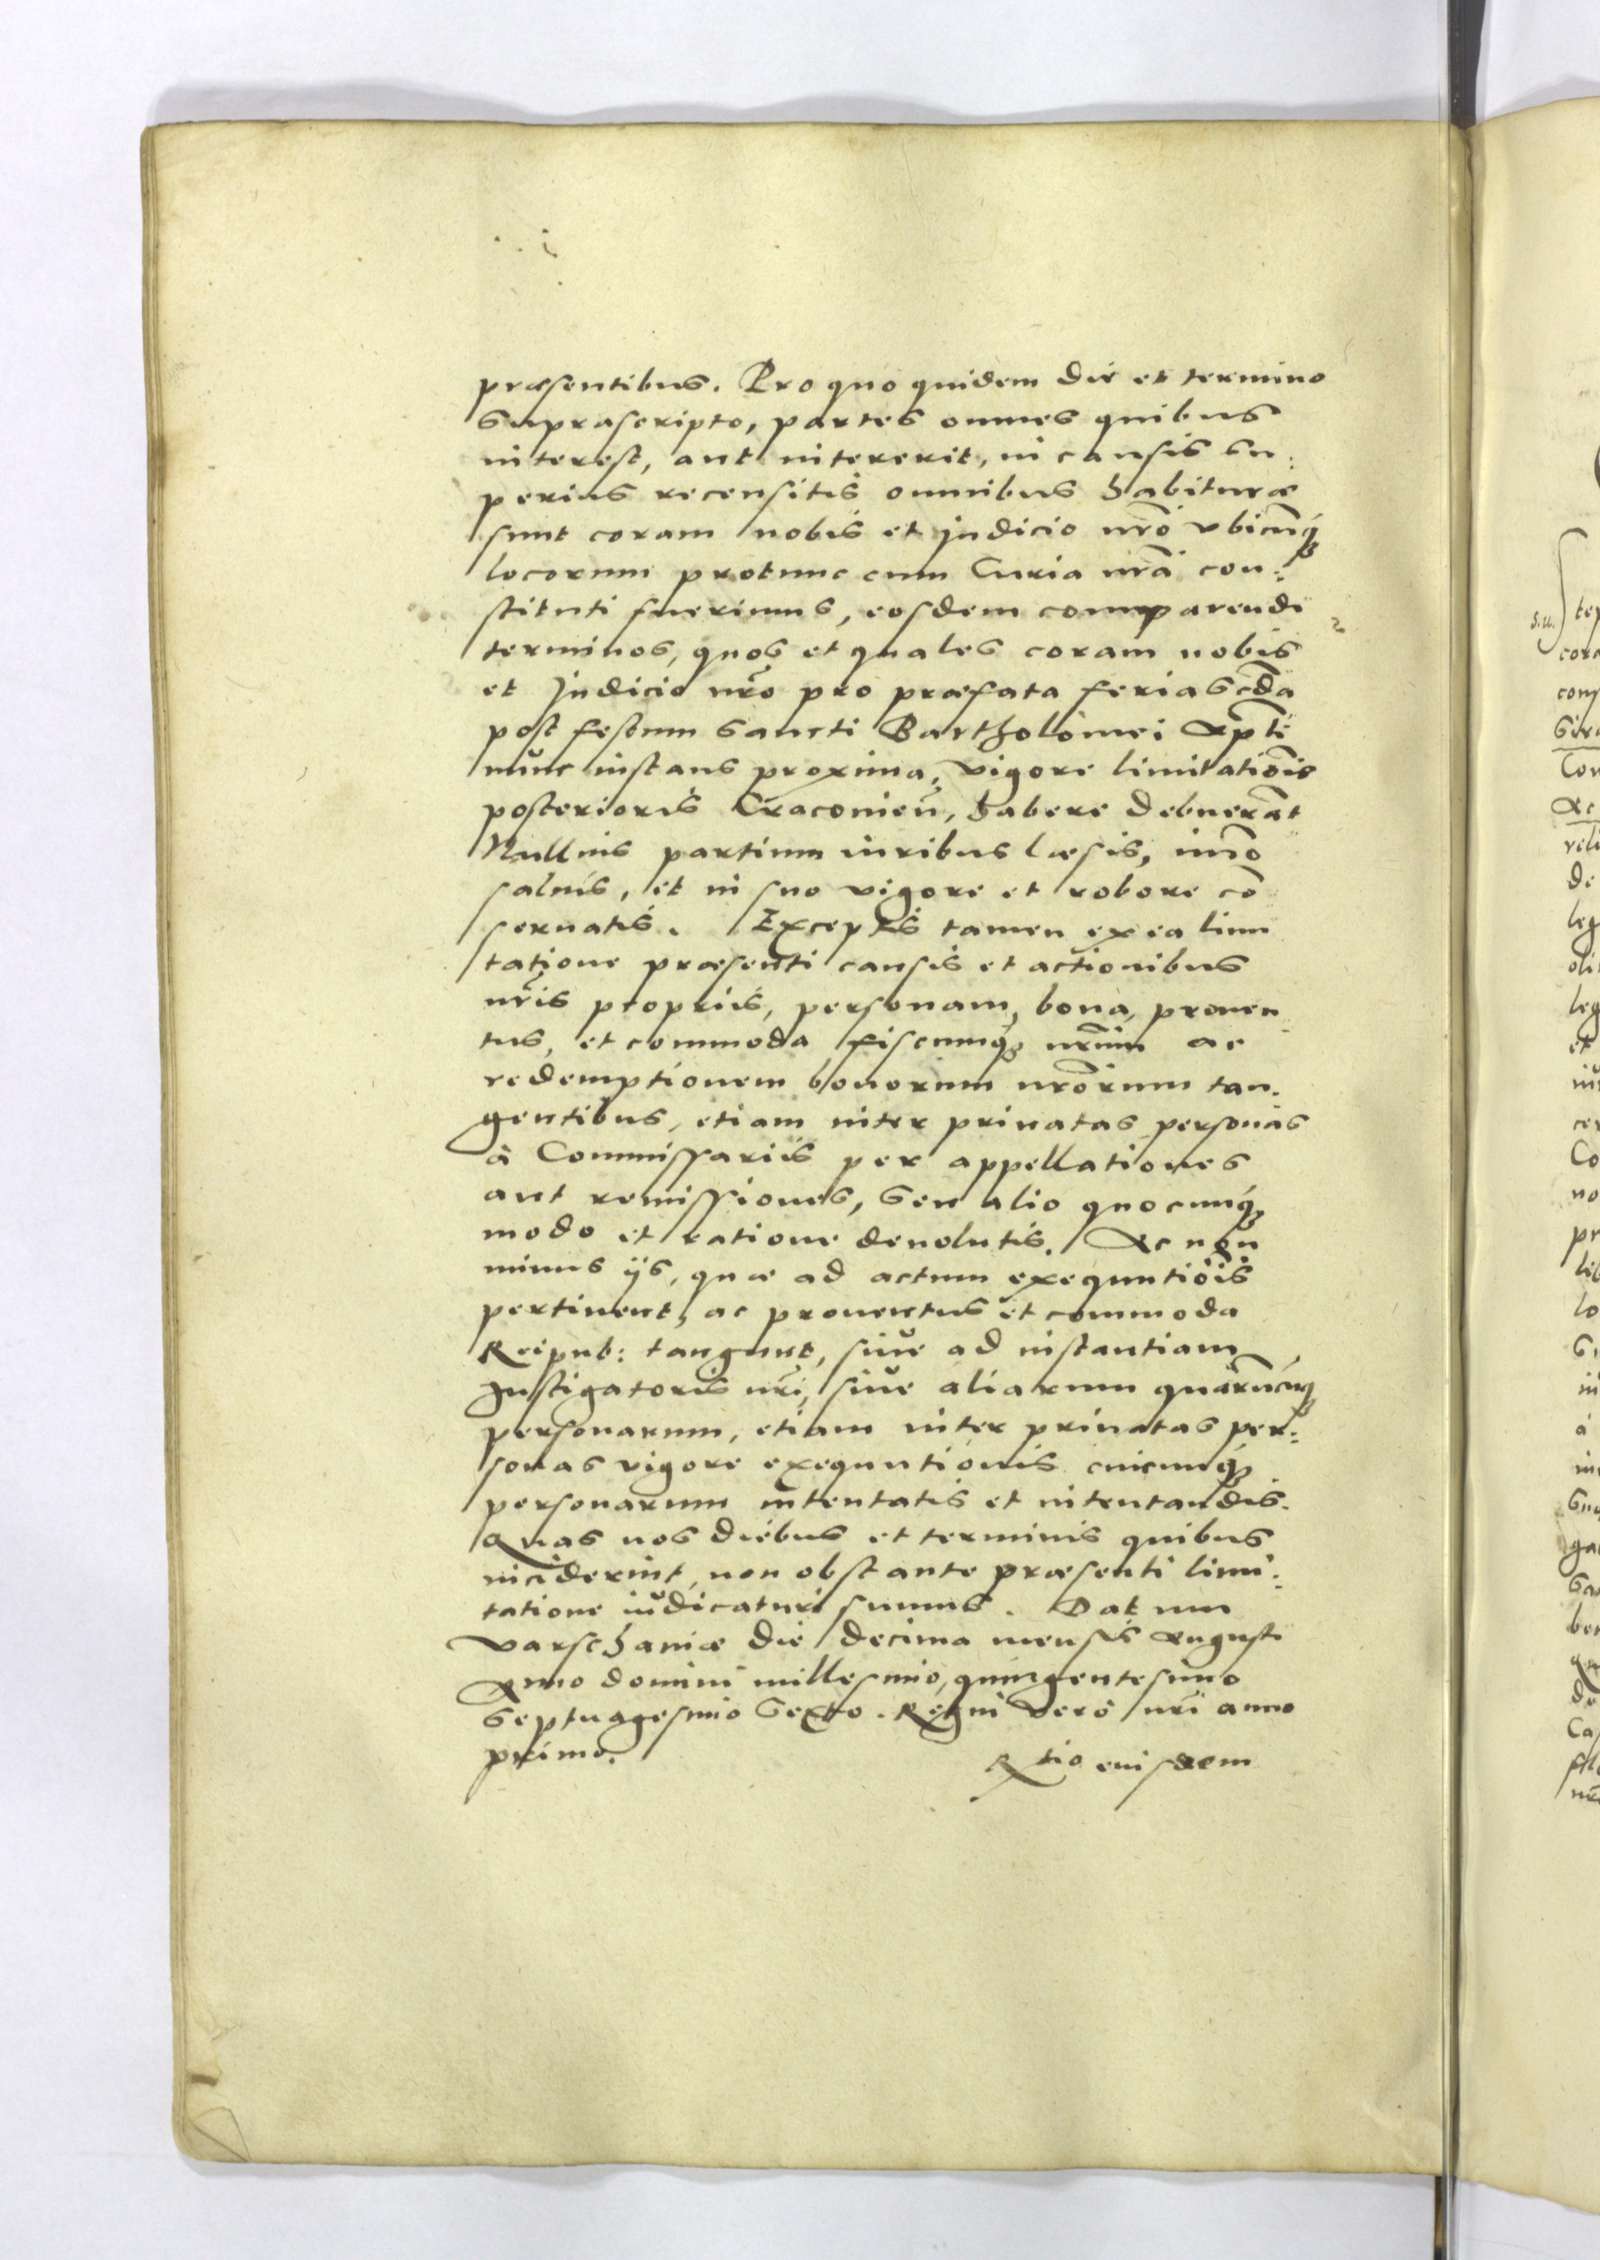 præsentibus. Pro quo quidem die et termino
suprascripto, partes omnes quibus
interest, aut intererit, in causis su:
perius recensitis omnibus habituræ
sunt coram nobis et Judicio nr̄o vbicunq3
locorum protunc cum Curia nr̄a con:
stituti fuerimus, eosdem comparendi
terminos, quos et quales coram nobis
et Judicio nr̄o pro præfata feria scd̄a
post festum sancti Bartholomei Ap̄li
nunc instans proxima, vigore limitatiōis
posterioris Cracovieñ, habere debuerāt
Nullius partium iuribus læsis, imo
saluis, et in suo vigore et robore cō
seruatis. Exceptis tamen ex ea limi
tatione præsenti causis et actionibus
nr̄is proprijs, personam, bona, prouen
tus, et commoda fiscumq3 nr̄um ac
redemptionem bonorum nr̄orum tan:
gentibus, etiam inter priuatas personas
à Commissarijs per appellationes
aut remissiones, seu alio quocunq3
modo et ratione deuolutis. Ac non
minus ijs, quæ ad actum exequutiōis
pertinent, ac prouentus et commoda
Reipub: tangunt, siue ad instantiam
Instigatoris nr̄i, siue aliarum quarūcunq3
personarum, etiam inter priuatas per:
sonas vigore exequutionis cuicunq3
personarum intentatis et intentandis.
Quas nos diebus et terminis quibus
inciderint, non obstante præsenti limi:
tatione iudicaturi sumus. Datum
Varschauiæ die decima mensis Augusti
Anno domini millesimo, quingentesimo
septuagesimo sexto. Regni vero nr̄i anno
primo.
Rtio eiusdem